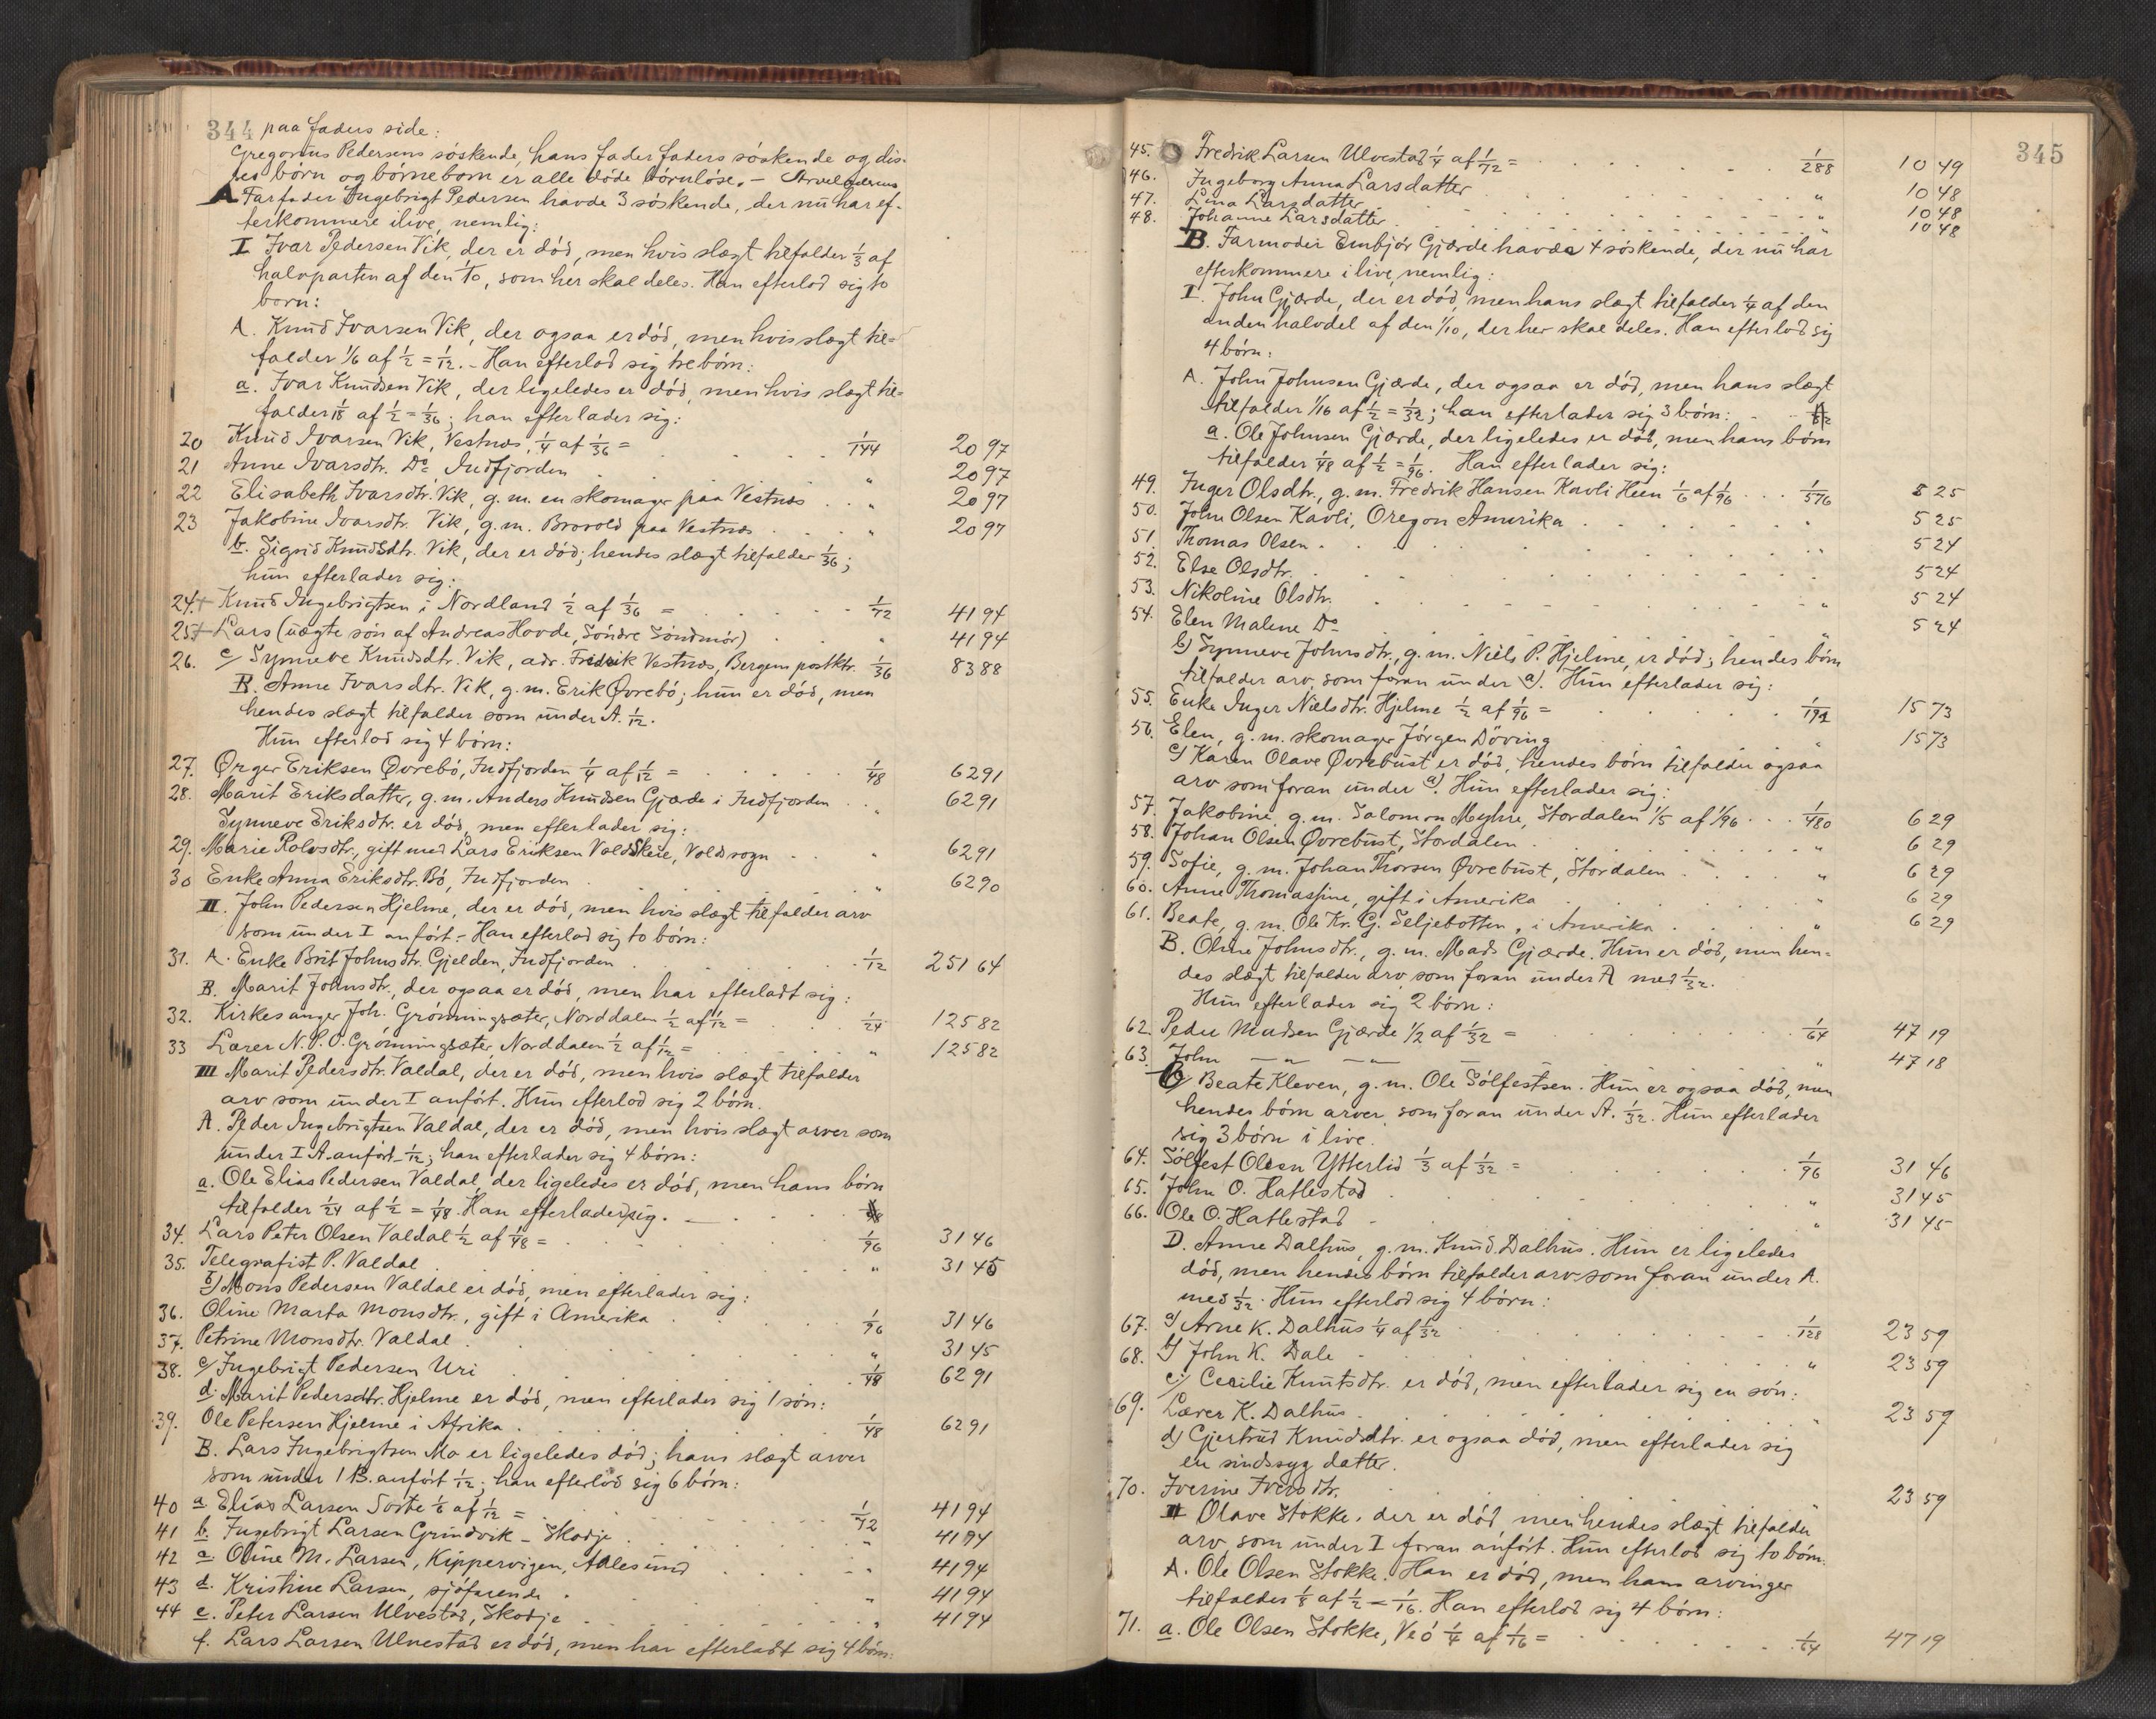 344 paa faders side:
Gregorius Pedersens søskende, hans fader faders søskende og dis-
ses børn og børnebørn er alle døde børnløse. — Arveladerens
A Farfader Ingebrigt Pedersen havde 3 søskende, der nu har ef-
terkommere ilive, nemlig:
I Ivar Pedersen Vik, der er død, men hvis slægt tilfalder 1/3 af
halvparten af den 1/10, som her skal deles. Han efterlod sig to
børn:
A. Knud Ivarsen Vik, der ogsaa er død, men hvis slægt til-
falder 1/6 af 1/2 = 1/12. - Han efterlod sig tre børn:
a. Ivar Knudsen Vik, der ligeledes er død, men hvis slægt til-
falder 1/18 af 1/2 = 1/36; han efterlader sig:
20 Knud Ivarsen Vik, Vestnæs, 1/4 af 1/36 = 1/144 20 97
21 Anne Ivarsdtr. Do Indfjorden " 20 97
22 Elisabeth Ivarsdtr. Vik, g. m. en skomager paa Vestnæs . . " 20 97
23 Jakobine Ivarsdtr. Vik, g. m. Brovold paa Vestnæs . . " 20 97
b. Sigrid Knudsdtr. Vik, der er død; hendes slægt tilfalder 1/36;
hun efterlader sig:
24.+ Knud Ingebrigtsen i Nordland 1/2 af 1/36 = 1/72 41 94
25+ Lars (uægte søn af Andreas Hovde, Søndre Søndmør) " 41 94
26. c/ Synneve Knudsdtr. Vik, adr. Fredrik Vestnæs, Bergens postktr. 1/36 83 88
B. Anne Ivarsdtr. Vik, g. m. Erik Øvrebø; hun er død, men
hendes slægt tilfalder som under A. 1/12.
Hun efterlod sig 4 børn:
27. Ørger Eriksen Øvrebø, Indfjorden 1/4 af 1/12 = 1/48 62 91
28. Marit Eriksdatter, g. m. Anders Knudsen Gjærde i Indfjorden . . " 62 91
Synneve Eriksdtr. er død, men efterlader sig:
29. Marie Rolvsdtr., gift med Lars Eriksen Voldskeie, Voldsogn . . " 62 91
30 Enke Anna Eriksdtr. Bø, Indfjorden " 62 90
II. John Pedersen Hjelme, der er død, men hvis slægt tilfalder arv
som under I anført. - Han efterlod sig to børn:
31. A. Enke Brit Johnsdtr. Gjelden, Indfjorden 1/12 251 64
B. Marit Johnsdtr., der ogsaa er død, men har efterladt sig:
32. Kirkesanger Joh. Grønningsæter, Norddalen 1/2 af 1/12 = 1/24 125 82
33 Lærer N. P. O. Grønningsæter, Norddalen 1/2 af 1/12 = " 125 82
III Marit Pedersdtr. Valdal, der er død, men hvis slægt tilfalder
arv som under I anført. Hun efterlod sig 2 børn.
A. Peder Ingebrigtsen Valdal, der er død, men hvis slægt arver som
under I A. anført - 1/12; han efterlader sig 4 børn:
a. Ole Elias Pedersen Valdal, der ligeledes er død, men hans børn
tilfalder 1/24 af 1/2 = 1/48. Han efterlader sig. —
34. Lars Peter Olsen Valdal 1/2 af 1/48 = 1/96 31 46
35. Telegrafist P. Valdal " 31 45
b) Mons Pedersen Valdal er død, men efterlader sig:
36. Oline Marta Monsdtr., gift i Amerika 1/96 31 46
37. Petrine Monsdtr. Valdal " 31 45
38. c/ Ingebrigt Pedersen Uri 1/48 62 91
d. Marit Pedersdtr. Hjelme er død, men efterlader sig 1 søn:
39. Ole Petersen Hjelme i Afrika 1/48 62 91
B. Lars Ingebrigtsen Mo er ligeledes død; hans slægt arver
som under I B. anført 1/12; han efterlod sig 6 børn:
40 a Elias Larsen Sorte 1/6 af 1/12 = 1/72 41 94
41 b. Ingebrigt Larsen Grindvik - Skodje " 41 94
42 c Oline M. Larsen, Kippervigen, Aalesund " 41 94
43 d. Kristine Larsen, sjøfarende " 41 94
44 e. Peter Larsen Ulvestad, Skodje " 41 94
f. Lars Larsen Ulvestad er død, men har efterladt sig 4 børn:
345
45. Fredrik Larsen Ulvestad 1/4 af 1/72 = 1/288 10 49
46. Ingeborg Anna Larsdatter " 10 48
47. Lina Larsdatter " 10 48
48. Johanne Larsdatter " 10 48
B. Farmoder Embjør Gjærde havde 4 søskende, der nu har
efterkommere i live, nemlig:
I. John Gjærde, der er død, men hans slægt tilfalder 1/4 af den
anden halvdel af den 1/10, der her skal deles. Han efterlod sig
4 børn:
A. John Johnsen Gjærde, der ogsaa er død, men hans slægt
tilfalder 1/16 af 1/2 = 1/32; han efterlader sig 3 børn:
a. Ole Johnsen Gjærde, der ligeledes er død, men hans børn
tilfalder 1/48 af 1/2 = 1/96. Han efterlader sig:
49. Inger Olsdtr., g. m. Fredrik Hansen Kavli Heen 1/6 af 1/96 . . . 1/576 5 25
50. John Olsen Kavli, Oregon Amerika " 5 25
51. Thomas Olsen " 5 24
52. Else Olsdtr. 5 24
53. Nikoline Olsdtr. " 5 24
54. Elen Malene Do " 5 24
b) Synneve Johnsdtr., g. m. Niels P. Hjelme, er død; hendes børn
tilfalder arv, som foran under a). Hun efterlader sig:
55. Enke Inger Nielsdtr. Hjelme 1/2 af 1/96 = 1/192 15 73
56. Elen, g. m. skomager Jørgen Døving " 15 73
c) Karen Olave Øvrebust er død, hendes børn tilfalder ogsaa
arv som foran under a). Hun efterlader sig:
57. Jakobine, g. m. Salomon Myhre, Stordalen 1/5 af 1/96 . . . 1/480 6 29
58. Johan Olsen Øvrebust, Stordalen " 6 29
59. Sofie, g. m. Johan Thorsen Øvrebust, Stordalen " 6 29
60. Anne Thomassine, gift i Amerika " 6 29
61. Beate, g. m. Ole Kr. G. Seljebotten, i Amerika " 6 29
B. Oline Johnsdtr., g. m. Mads Gjærde. Hun er død, men hen-
des slægt tilfalder arv, som foran under A med 1/32.
Hun efterlader sig 2 børn:
62. Peder Madsen Gjærde 1/2 af 1/32 = 1/64 47 19
63. John — " — " — " 47 18
C/ Beate Kleven, g. m. Ole Sølfestsen. Hun er ogsaa død, men
hendes børn arver som foran under A. 1/32. Hun efterlader
sig 3 børn i live.
64. Sølfest Olsen Ytterlid 1/3 af 1/32 = 1/96 31 46
65. John O. Hatlestad " 31 45
66. Ole O. Hatlestad " 31 45
D. Anne Dalhus, g. m. Knud Dalhus. Hun er ligeledes
død, men hendes børn tilfalder arv som foran under A.
med 1/32. Hun efterlod sig 4 børn:
67. a) Arne K. Dalhus 1/4 af 1/32 1/128 23 59
68. b) John K. Dale " 23 59
c) Cecilie Knutsdtr. er død, men efterlader sig en søn:
69. Lærer K. Dalhus " 23 59
d) Gjertrud Knudsdtr. er ogsaa død, men efterlader sig
en sindssyg datter.
70. Iverine Iversdtr. " 23 59
II Olave Stokke, der er død, men hendes slægt tilfalder
arv, som under I foran anført. Hun efterlod sig to børn.
A. Ole Olsen Stokke. Han er død, men hans arvinger
tilfalder 1/8 af 1/2 = 1/16. Han efterlod sig 4 børn:
71. a. Ole Olsen Stokke, Veø 1/4 af 1/16 = 1/64 47 19